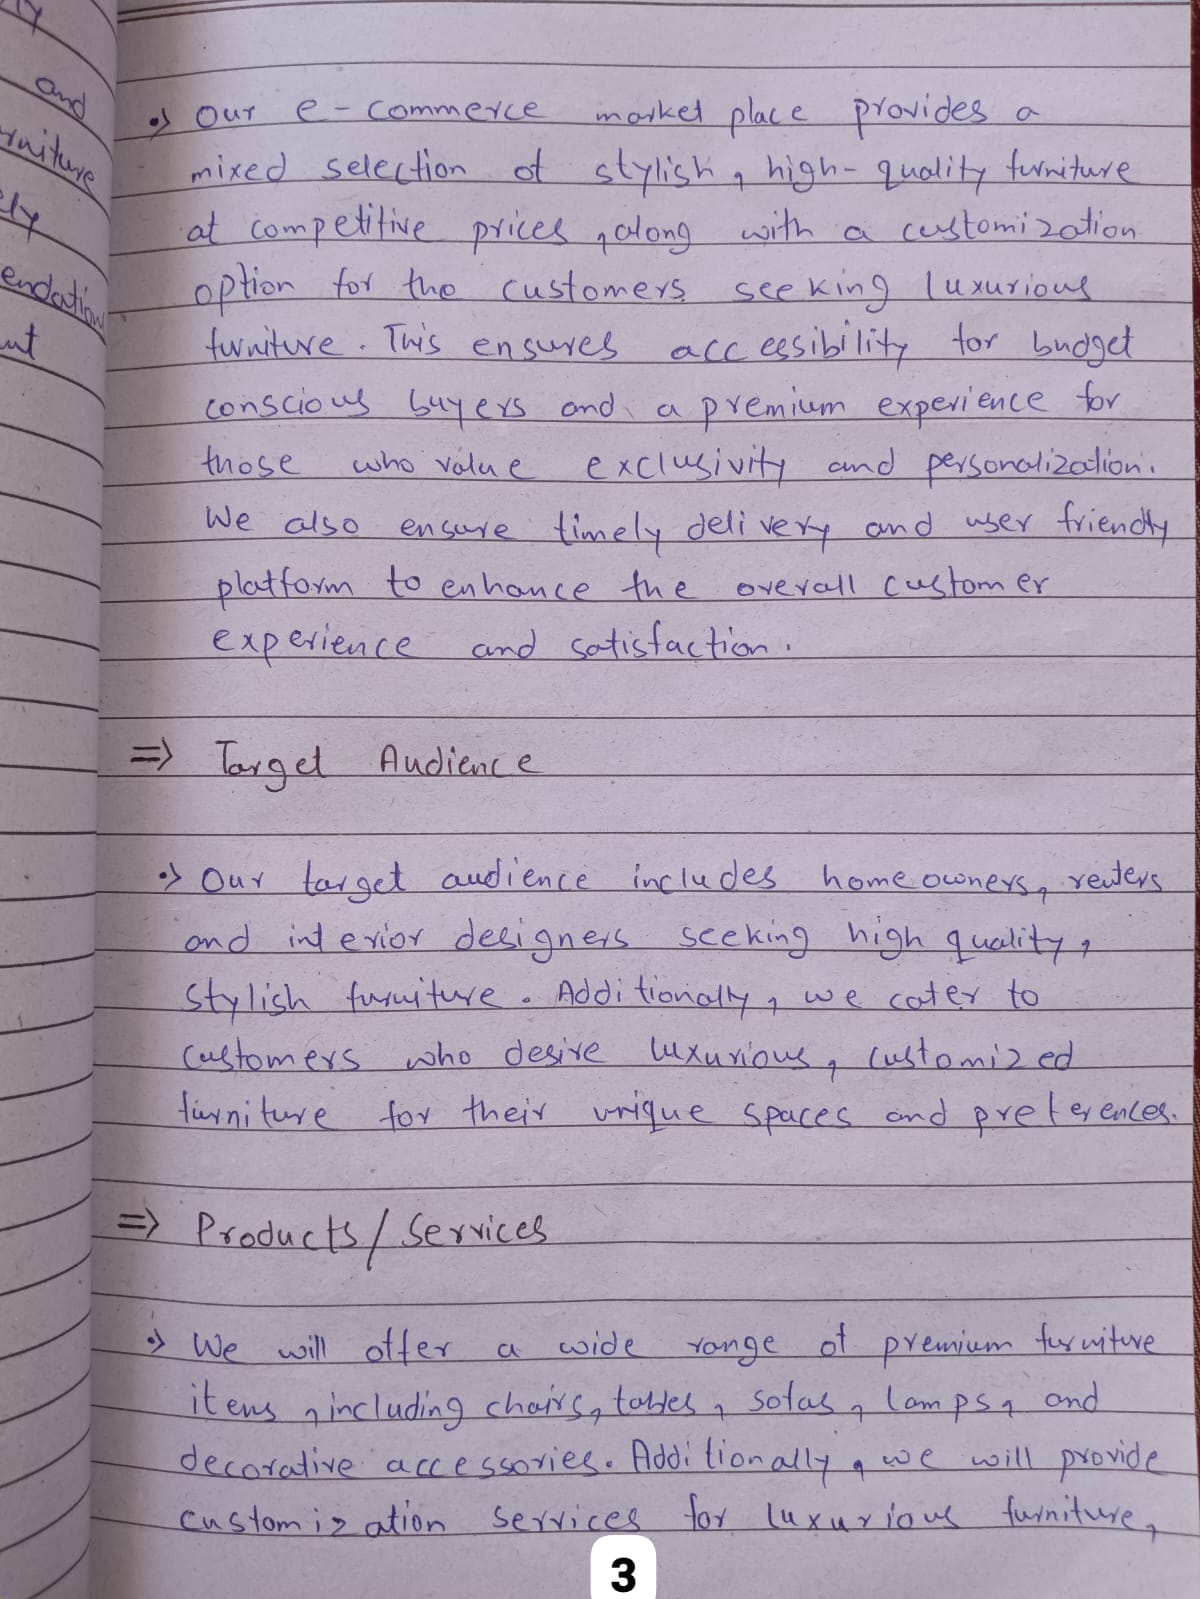 and
rniture
ely
endation
nt
•> Our e-commerce market place provides a
mixed selection of stylish, high-quality furniture
at competitive prices, along with a customization
option for the customers seeking luxurious
furniture. This ensures accessibility for budget
conscious buyers and a premium experience for
those who value exclusivity and personalization.
We also ensure timely delivery and user friendly
platform to enhance the overall customer
experience and satisfaction.
=> Target Audience
•> Our target audience includes homeowners, renters
and interior designers seeking high quality,
stylish furniture. Additionally, we cater to
customers who desire luxurious, customized
furniture for their unique spaces and preferences.
=> Products/Services
•> We will offer a wide range of premium furniture
items, including chairs, tables, sofas, lamps, and
decorative accessories. Additionally, we will provide
customization services for luxurious furniture,
3